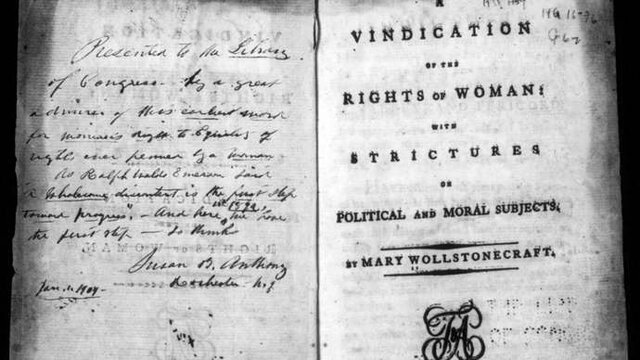 Presented to the Library
of Congress by a great
admirer of this earliest work
for woman's right to Equality of
rights ever penned by a woman
As Ralph Waldo Emerson said
"A wholesome discontent is the first step
toward progress" - And here, in 1792, we have
the first step - so thinks
Susan B. Anthony
Rochester N.Y.
Jan. 1, 1904
A
VINDICATION
OF THE
RIGHTS OF WOMAN:
WITH
STRICTURES
ON
POLITICAL AND MORAL SUBJECTS.
BY MARY WOLLSTONECRAFT.
HQ 1596